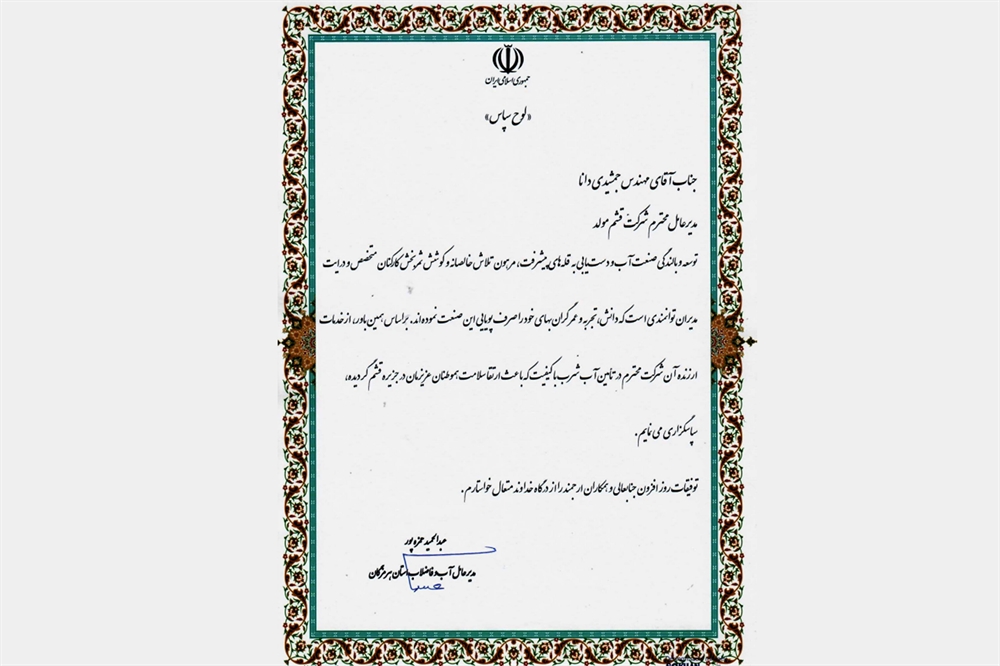 جمهوری اسلامی ایران
«لوح سپاس»
جناب آقای مهندس جمشیدی دانا
مدیرعامل محترم شرکت قشم مولد
توسعه و بالندگی صنعت آب و دست‌یابی به قله‌های پیشرفت، مرهون تلاش خالصانه و کوشش ثمربخش کارکنان متخصص و درایت
مدیران توانمندی است که دانش، تجربه و عمر گران‌بهای خود را صرف پویایی این صنعت نموده‌اند. براساس همین باور، از خدمات
ارزنده آن شرکت محترم در تأمین آب شرب با کیفیت که باعث ارتقا سلامت هموطنان عزیزمان در جزیره قشم گردیده،
سپاسگزاری می نمایم.
توفیقات روز افزون جنابعالی و همکاران ارجمند را از درگاه خداوند متعال خواستارم.
عبدالحمید حمزه پور
مدیرعامل آب و فاضلاب استان هرمزگان